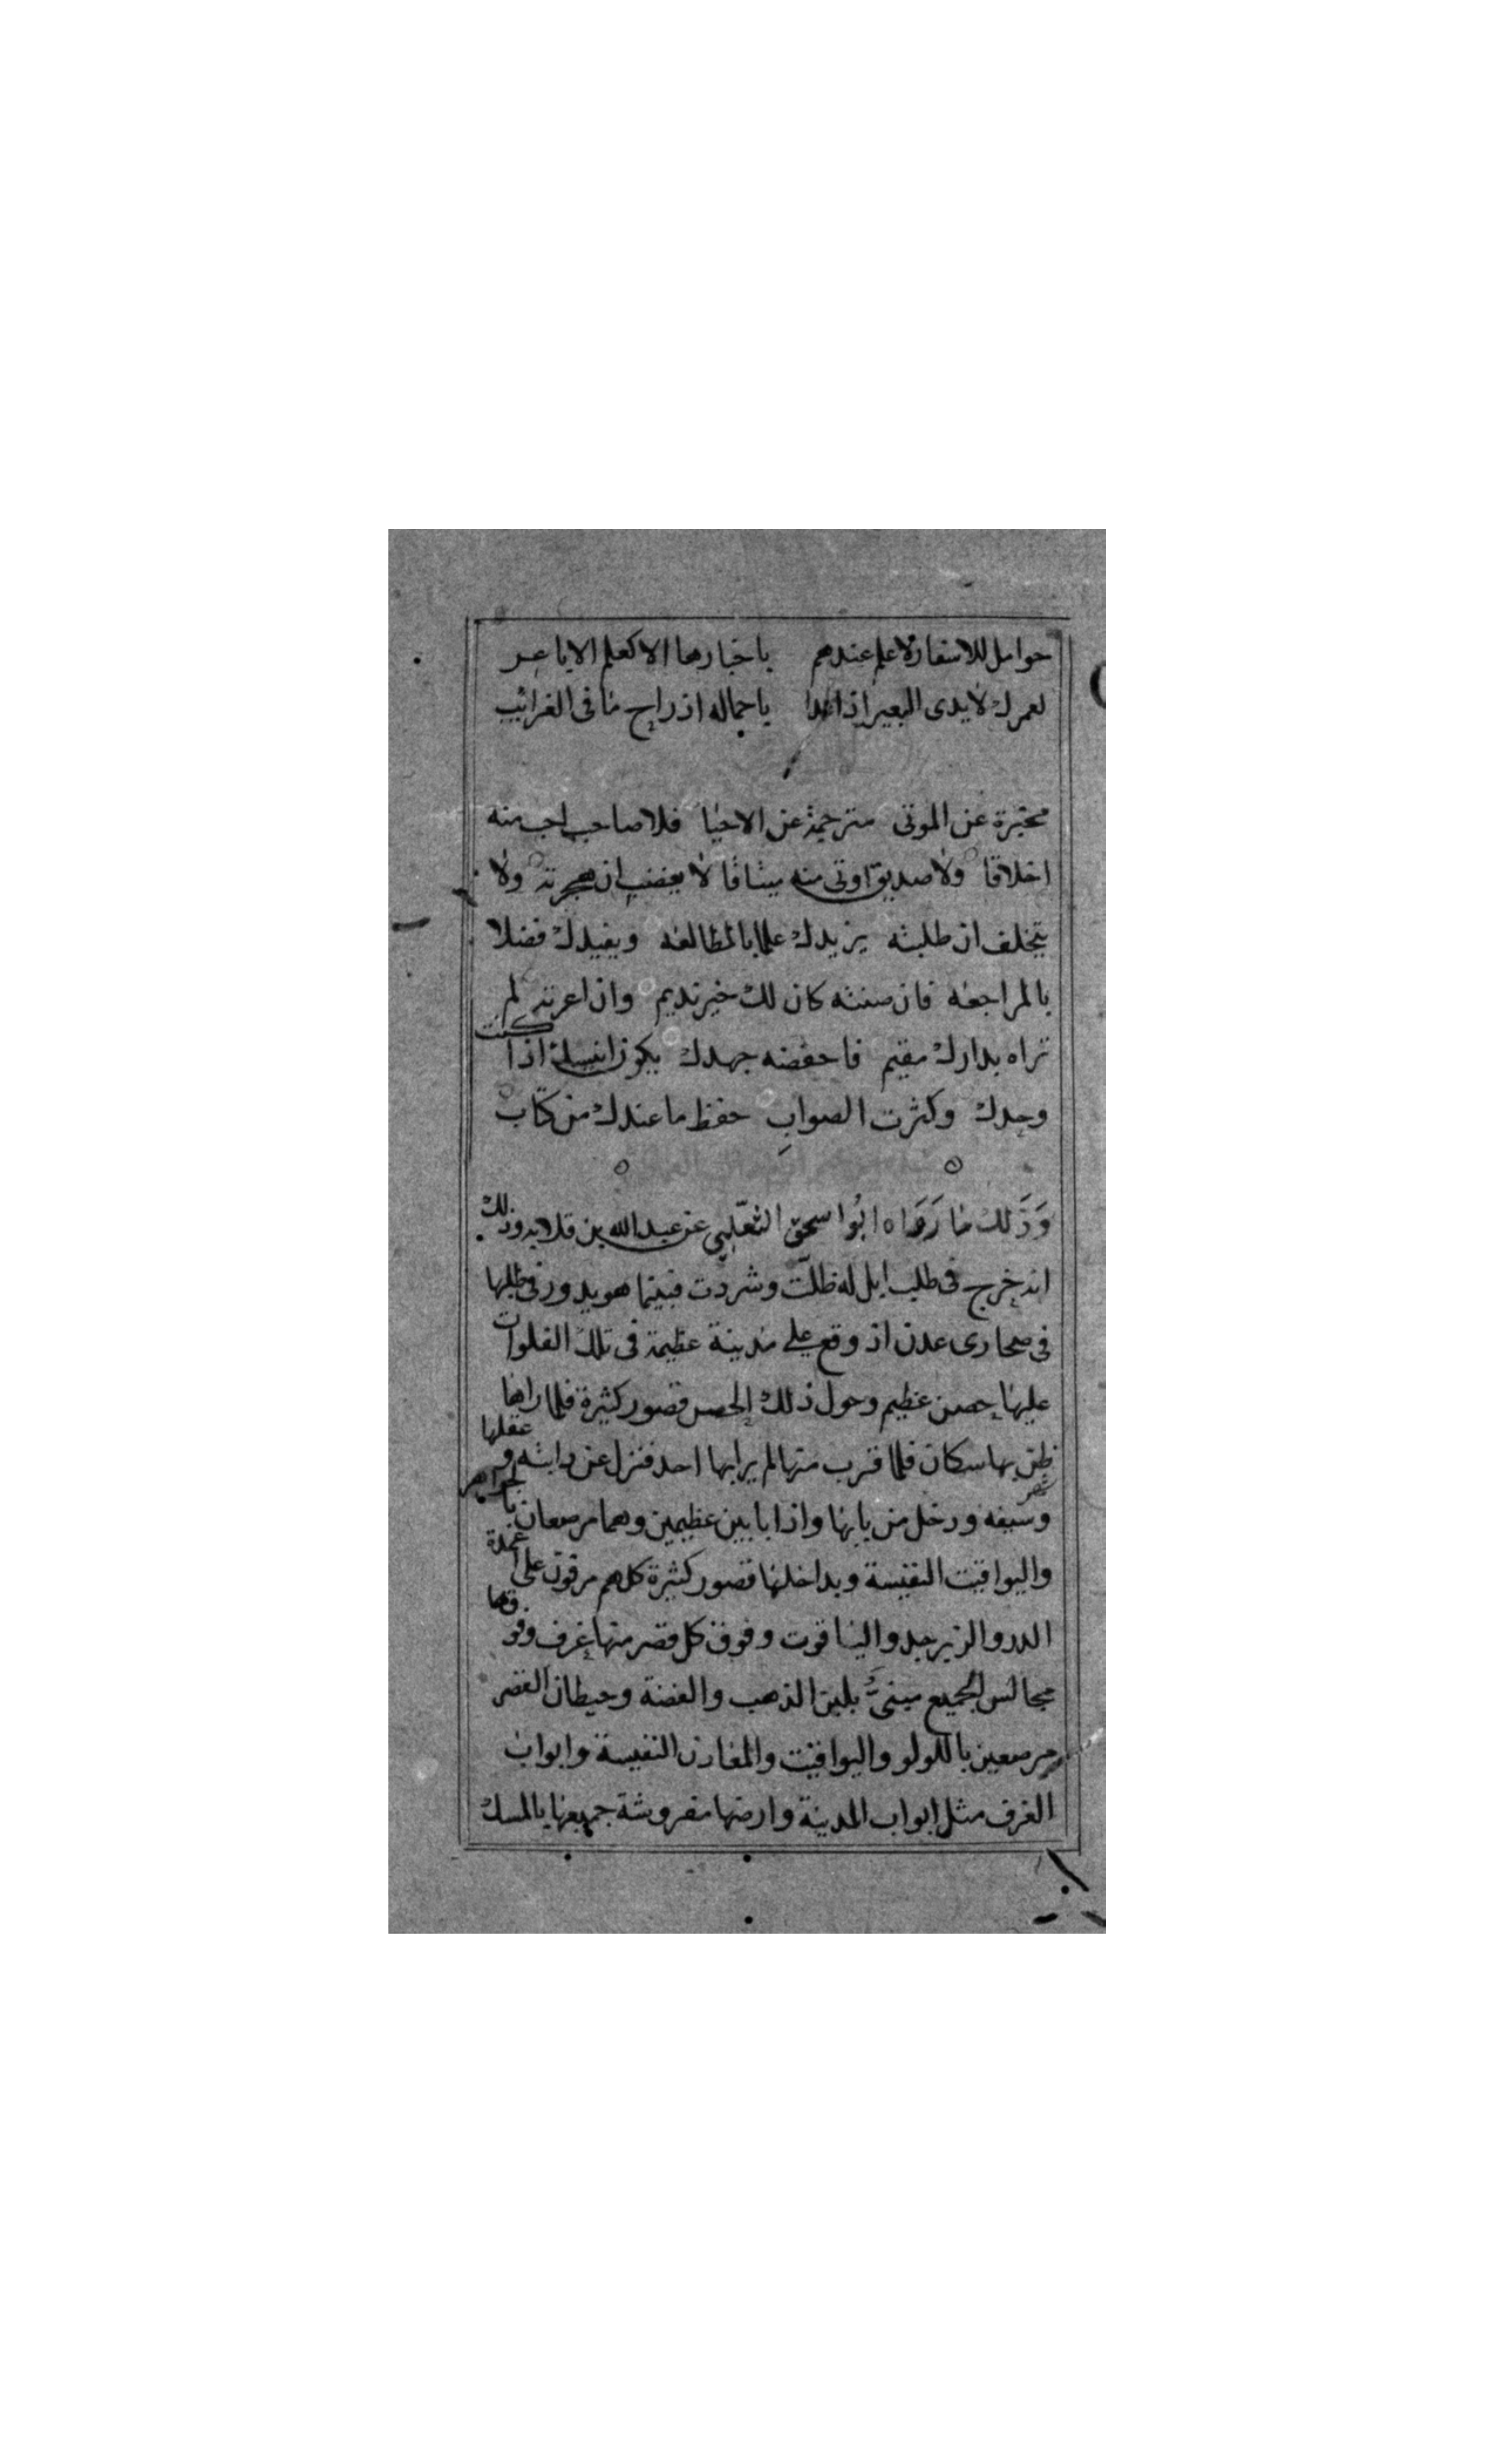 حوامل للاسفار لا علم عندهم باخبارها الا كعلم الاباعر
لعمرك لا يدى البعير اذا غدا باحماله اذ راح ما فى الغرائب
مخبرة عن الموتى مترجمة عن الاحيا فلا صاحب احب منه
اخلاقا ولا صديق اوتى منه ميثاقا لا يغضب ان هجرته ولا
يتخلف ان طلبته يزيدك علما بالمطالعه ويفيدك فضلا
بالمراجعه فان صنته كان لك خير نديم وان اعرته لم
تراه بدارك مقيم فاحفضه جهدك يكون انيسك اذا كنت
وحدك وكثرت الصواب حفظ ما عندك من كتاب
وذلك ما رواه ابوا سحق الثعلبي عن عبد الله بن قلابه وذلك
انه خرج فى طلب ابل له ظلت وشردت فبينما هو يدور فى طلبها
فى صحارى عدن اذ وقع على مدينة عظيمة فى تلك الفلوات
عليها حصن عظيم وحول ذلك الحصن قصور كثيرة فلما راها
ظن بها سكان فلما قرب منها لم ير بها احد فنزل عن دابته وعقلها
وشهر سيفه ودخل من بابها واذا بابين عظيمين وهما مرصعان بالجواهر
واليواقيت النفيسة وبداخلها قصور كثيرة كلهم مرقون على اعمدة
الدر والزبرجد والياقوت وفوق كل قصر منها غرف وفوقها
مجالس الجميع مبنى بلبن الذهب والفضة وحيطان القصر
مرصعين باللولو واليواقيت والمعادن النفيسة وابواب
الغرف مثل ابواب المدينة وارضها مفروشة جميعها بالمسك